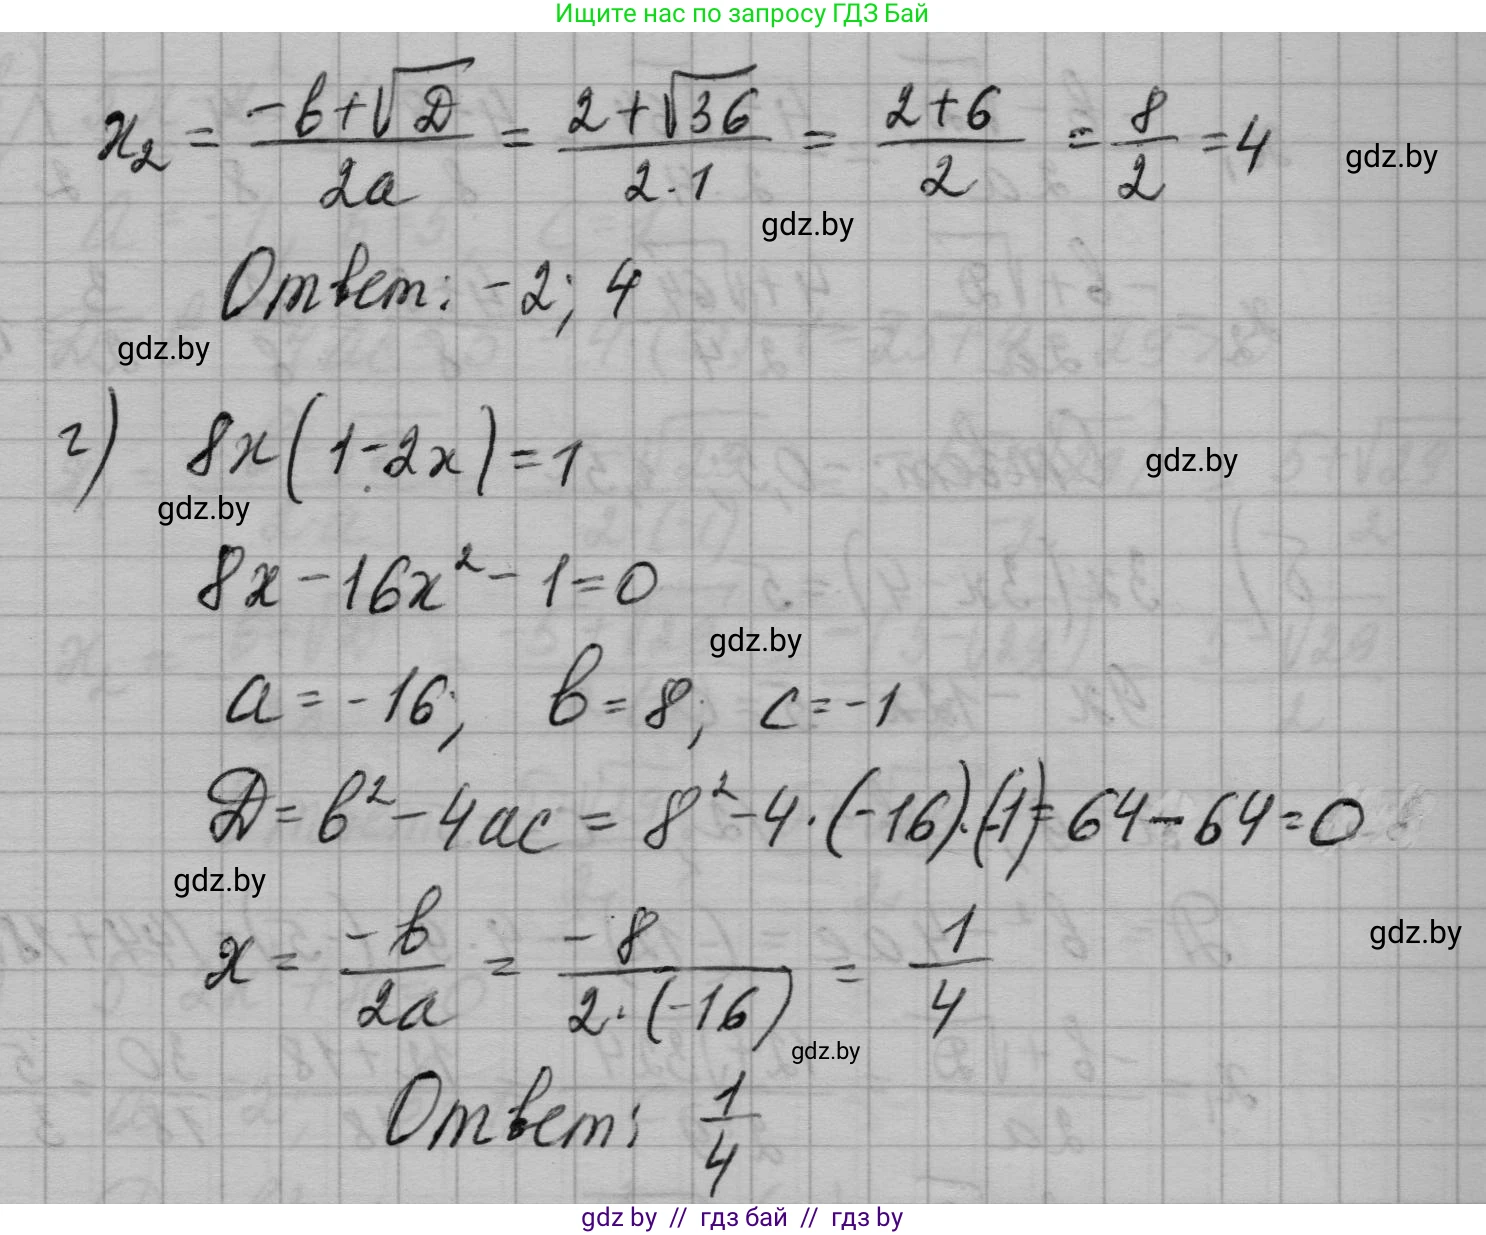 Ищите нас по запросу ГДЗ Бай
x₂ = (-b+√D)/(2a) = (2+√36)/(2·1) = (2+6)/2 = 8/2 = 4
gdz.by
gdz.by
Ответ: -2; 4
gdz.by
г) 8x(1-2x)=1
gdz.by
gdz.by
8x-16x²-1=0
gdz.by
a=-16; b=8; c=-1
D=b²-4ac=8²-4·(-16)·(-1)=64-64=0
gdz.by
x = (-b)/(2a) = (-8)/(2·(-16)) = 1/4
gdz.by
gdz.by
Ответ: 1/4
gdz by // гдз бай // гдз by